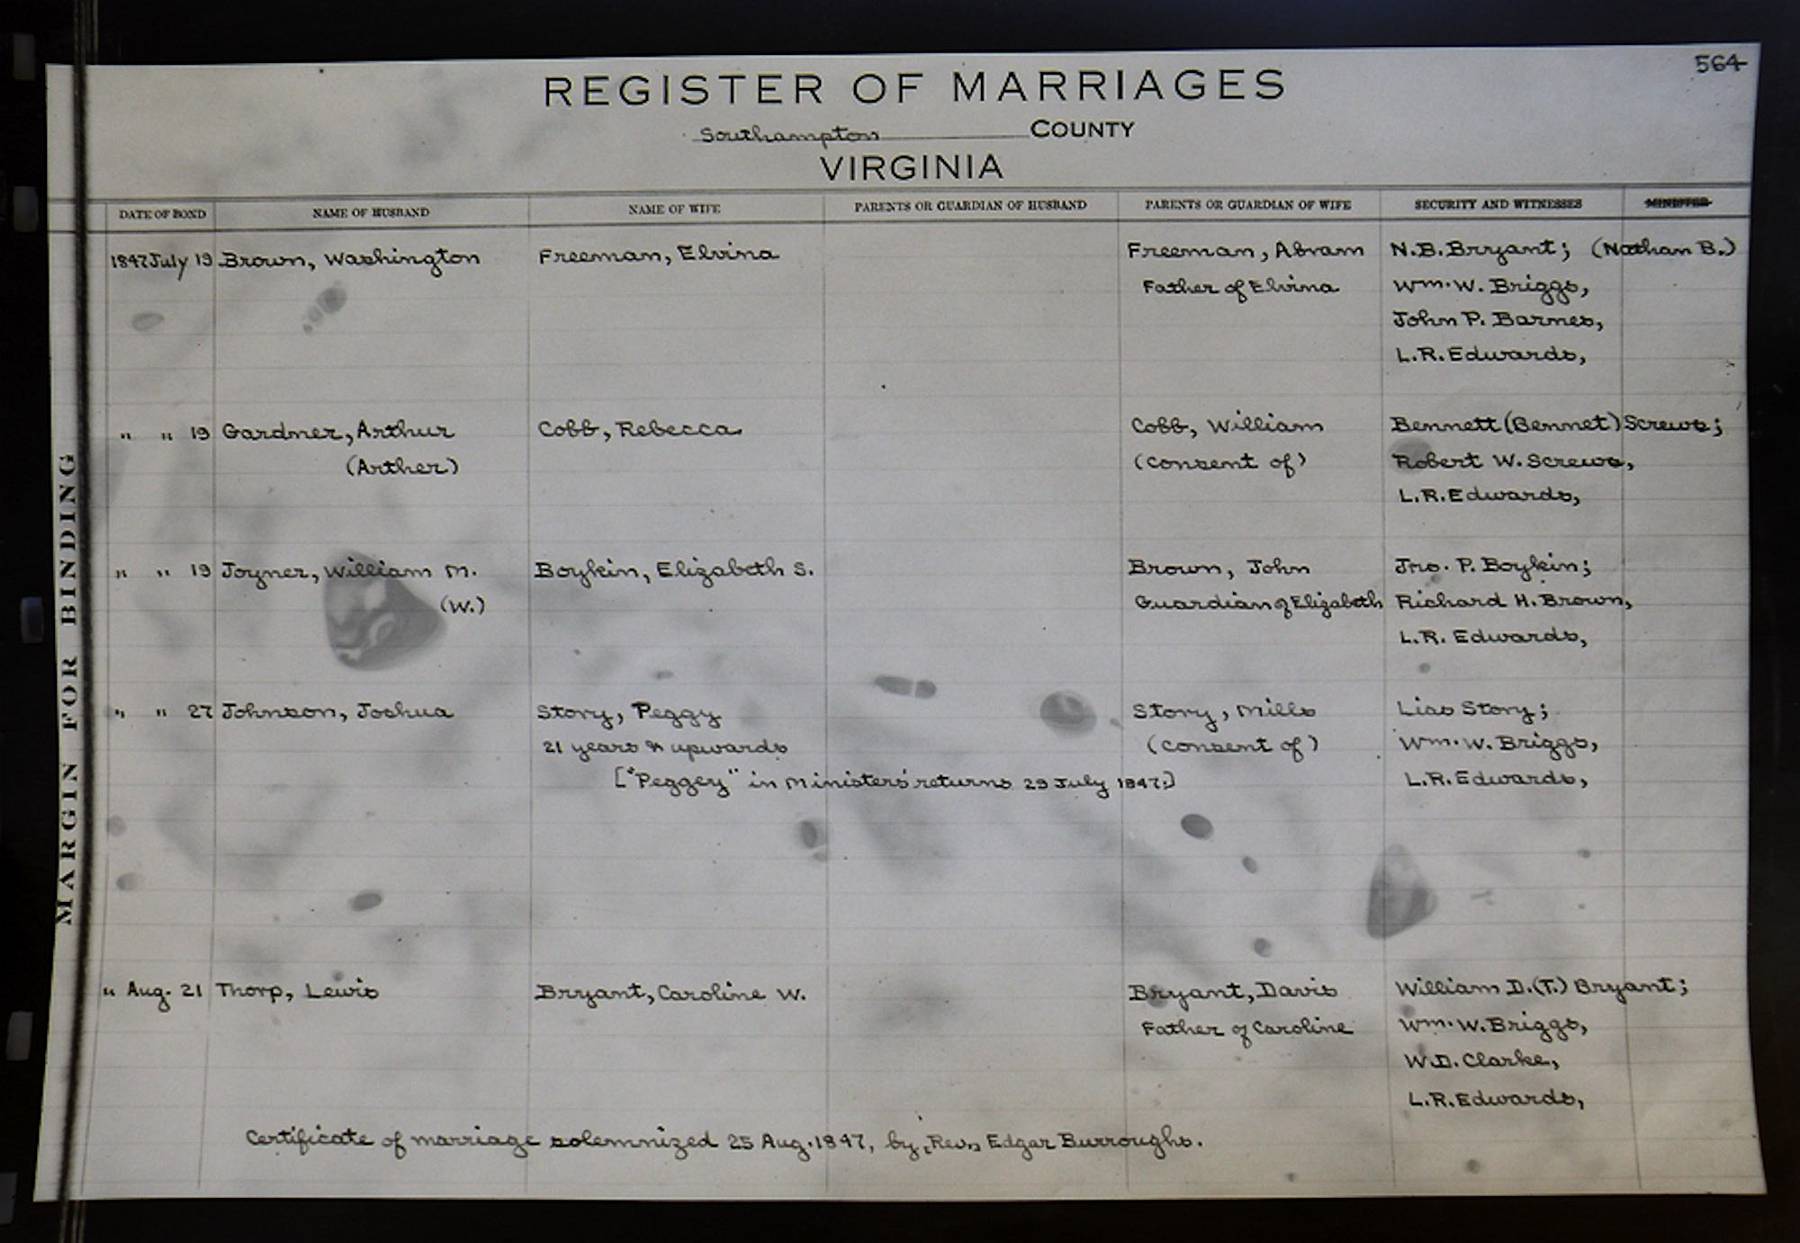 564
REGISTER OF MARRIAGES
Southampton COUNTY
VIRGINIA
MARGIN FOR BINDING
DATE OF BOND NAME OF HUSBAND NAME OF WIFE PARENTS OR GUARDIAN OF HUSBAND PARENTS OR GUARDIAN OF WIFE SECURITY AND WITNESSES MINISTER
1847 July 19 Brown, Washington Freeman, Elvina Freeman, Abram N.B. Bryant; (Nathan B.)
Father of Elvina Wm. W. Briggs,
John P. Barnes,
L.R. Edwards,
" " 19 Gardner, Arthur Cobb, Rebecca Cobb, William Bennett (Bennet) Screws;
(Arther) (consent of) Robert W. Screws,
L.R. Edwards,
" " 19 Joyner, William M. Boykin, Elizabeth S. Brown, John Jno. P. Boykin;
(W.) Guardian of Elizabeth Richard H. Brown,
L.R. Edwards,
" " 27 Johnson, Joshua Story, Peggy Story, Mills Lias Story;
21 years & upwards (consent of) Wm. W. Briggs,
["Peggey" in Ministers' returns 29 July 1847.] L.R. Edwards,
" Aug. 21 Thorp, Lewis Bryant, Caroline W. Bryant, Davis William D.(T.) Bryant;
Father of Caroline Wm. W. Briggs,
W.D. Clarke,
L.R. Edwards,
Certificate of marriage solemnized 25 Aug. 1847, by, Rev., Edgar Burroughs.